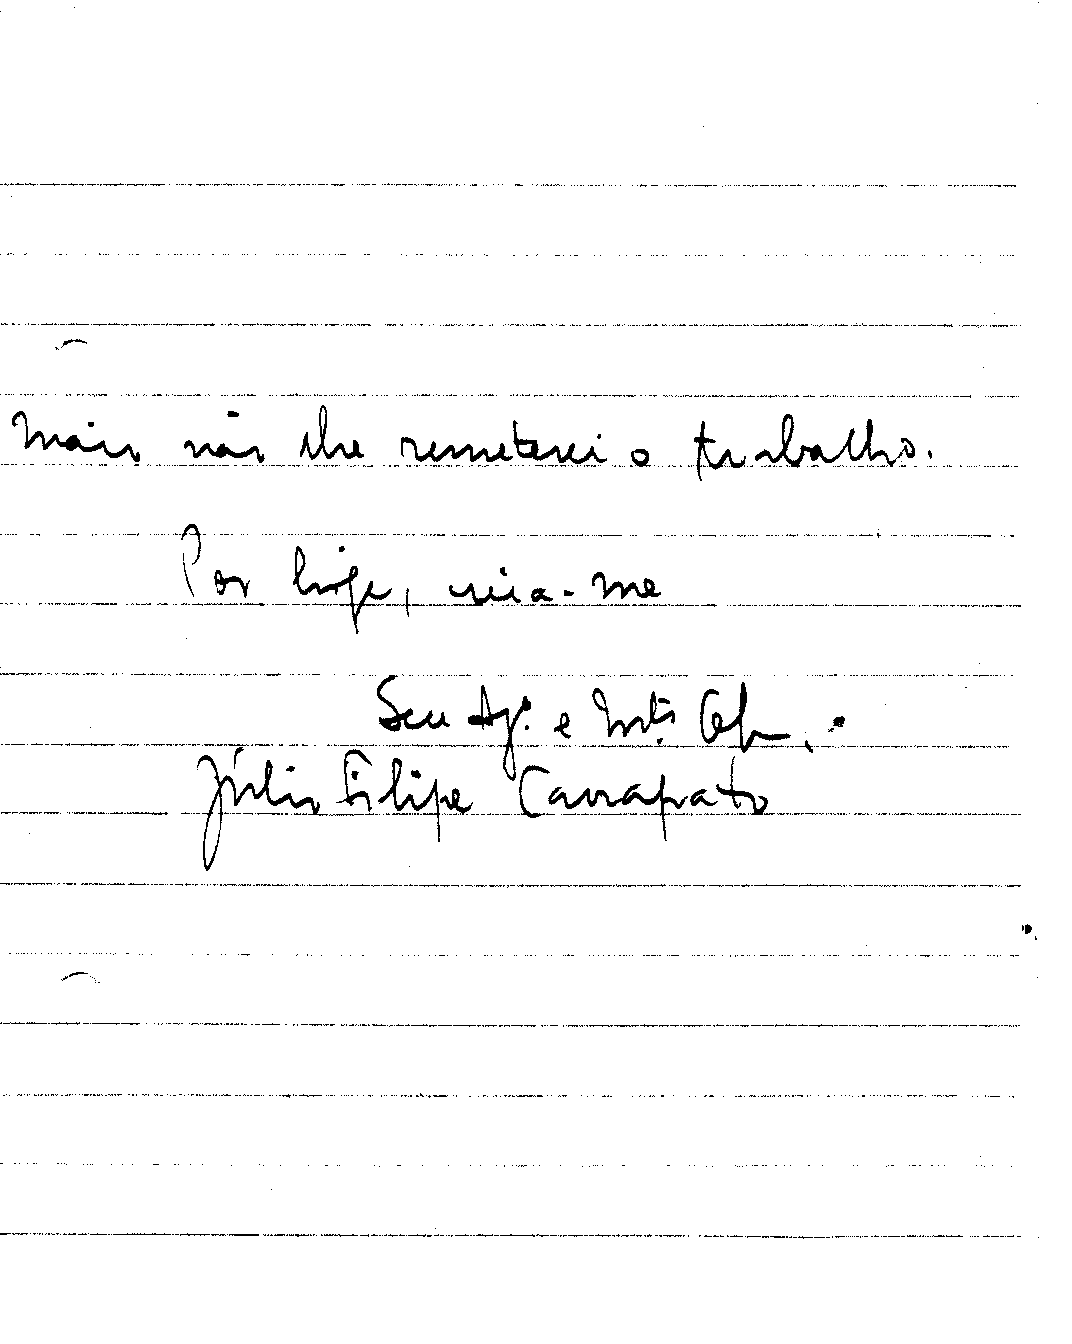 mais não lhe remeterei o trabalho.
Por hoje, creia-me
Seu Ag.º e Mt.º Obr.
Júlio Filipe Carrapato